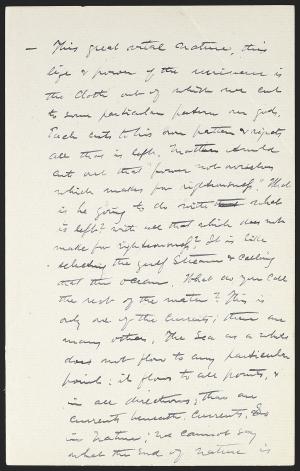 — This great vital Nature, this
life & power of the universe is
the cloth out of which we cut
to some particular pattern our gods.
Each cuts to his own pattern & rejects
all that is left. Matthew Arnold
cut out that "power not ourselves
which makes for righteousness." What
is he going to do with what
is left? with all that which does not
make for righteousness? It is like
selecting the gulf Stream & calling
that the ocean. What do you call
the rest of the water? This is
only one of the currents; there are
many others. The Sea as a whole
does not flow to any particular
point; it flows to all points, &
in all directions; there are
currents beneath currents. So
in Nature; we cannot say
what the end of Nature is